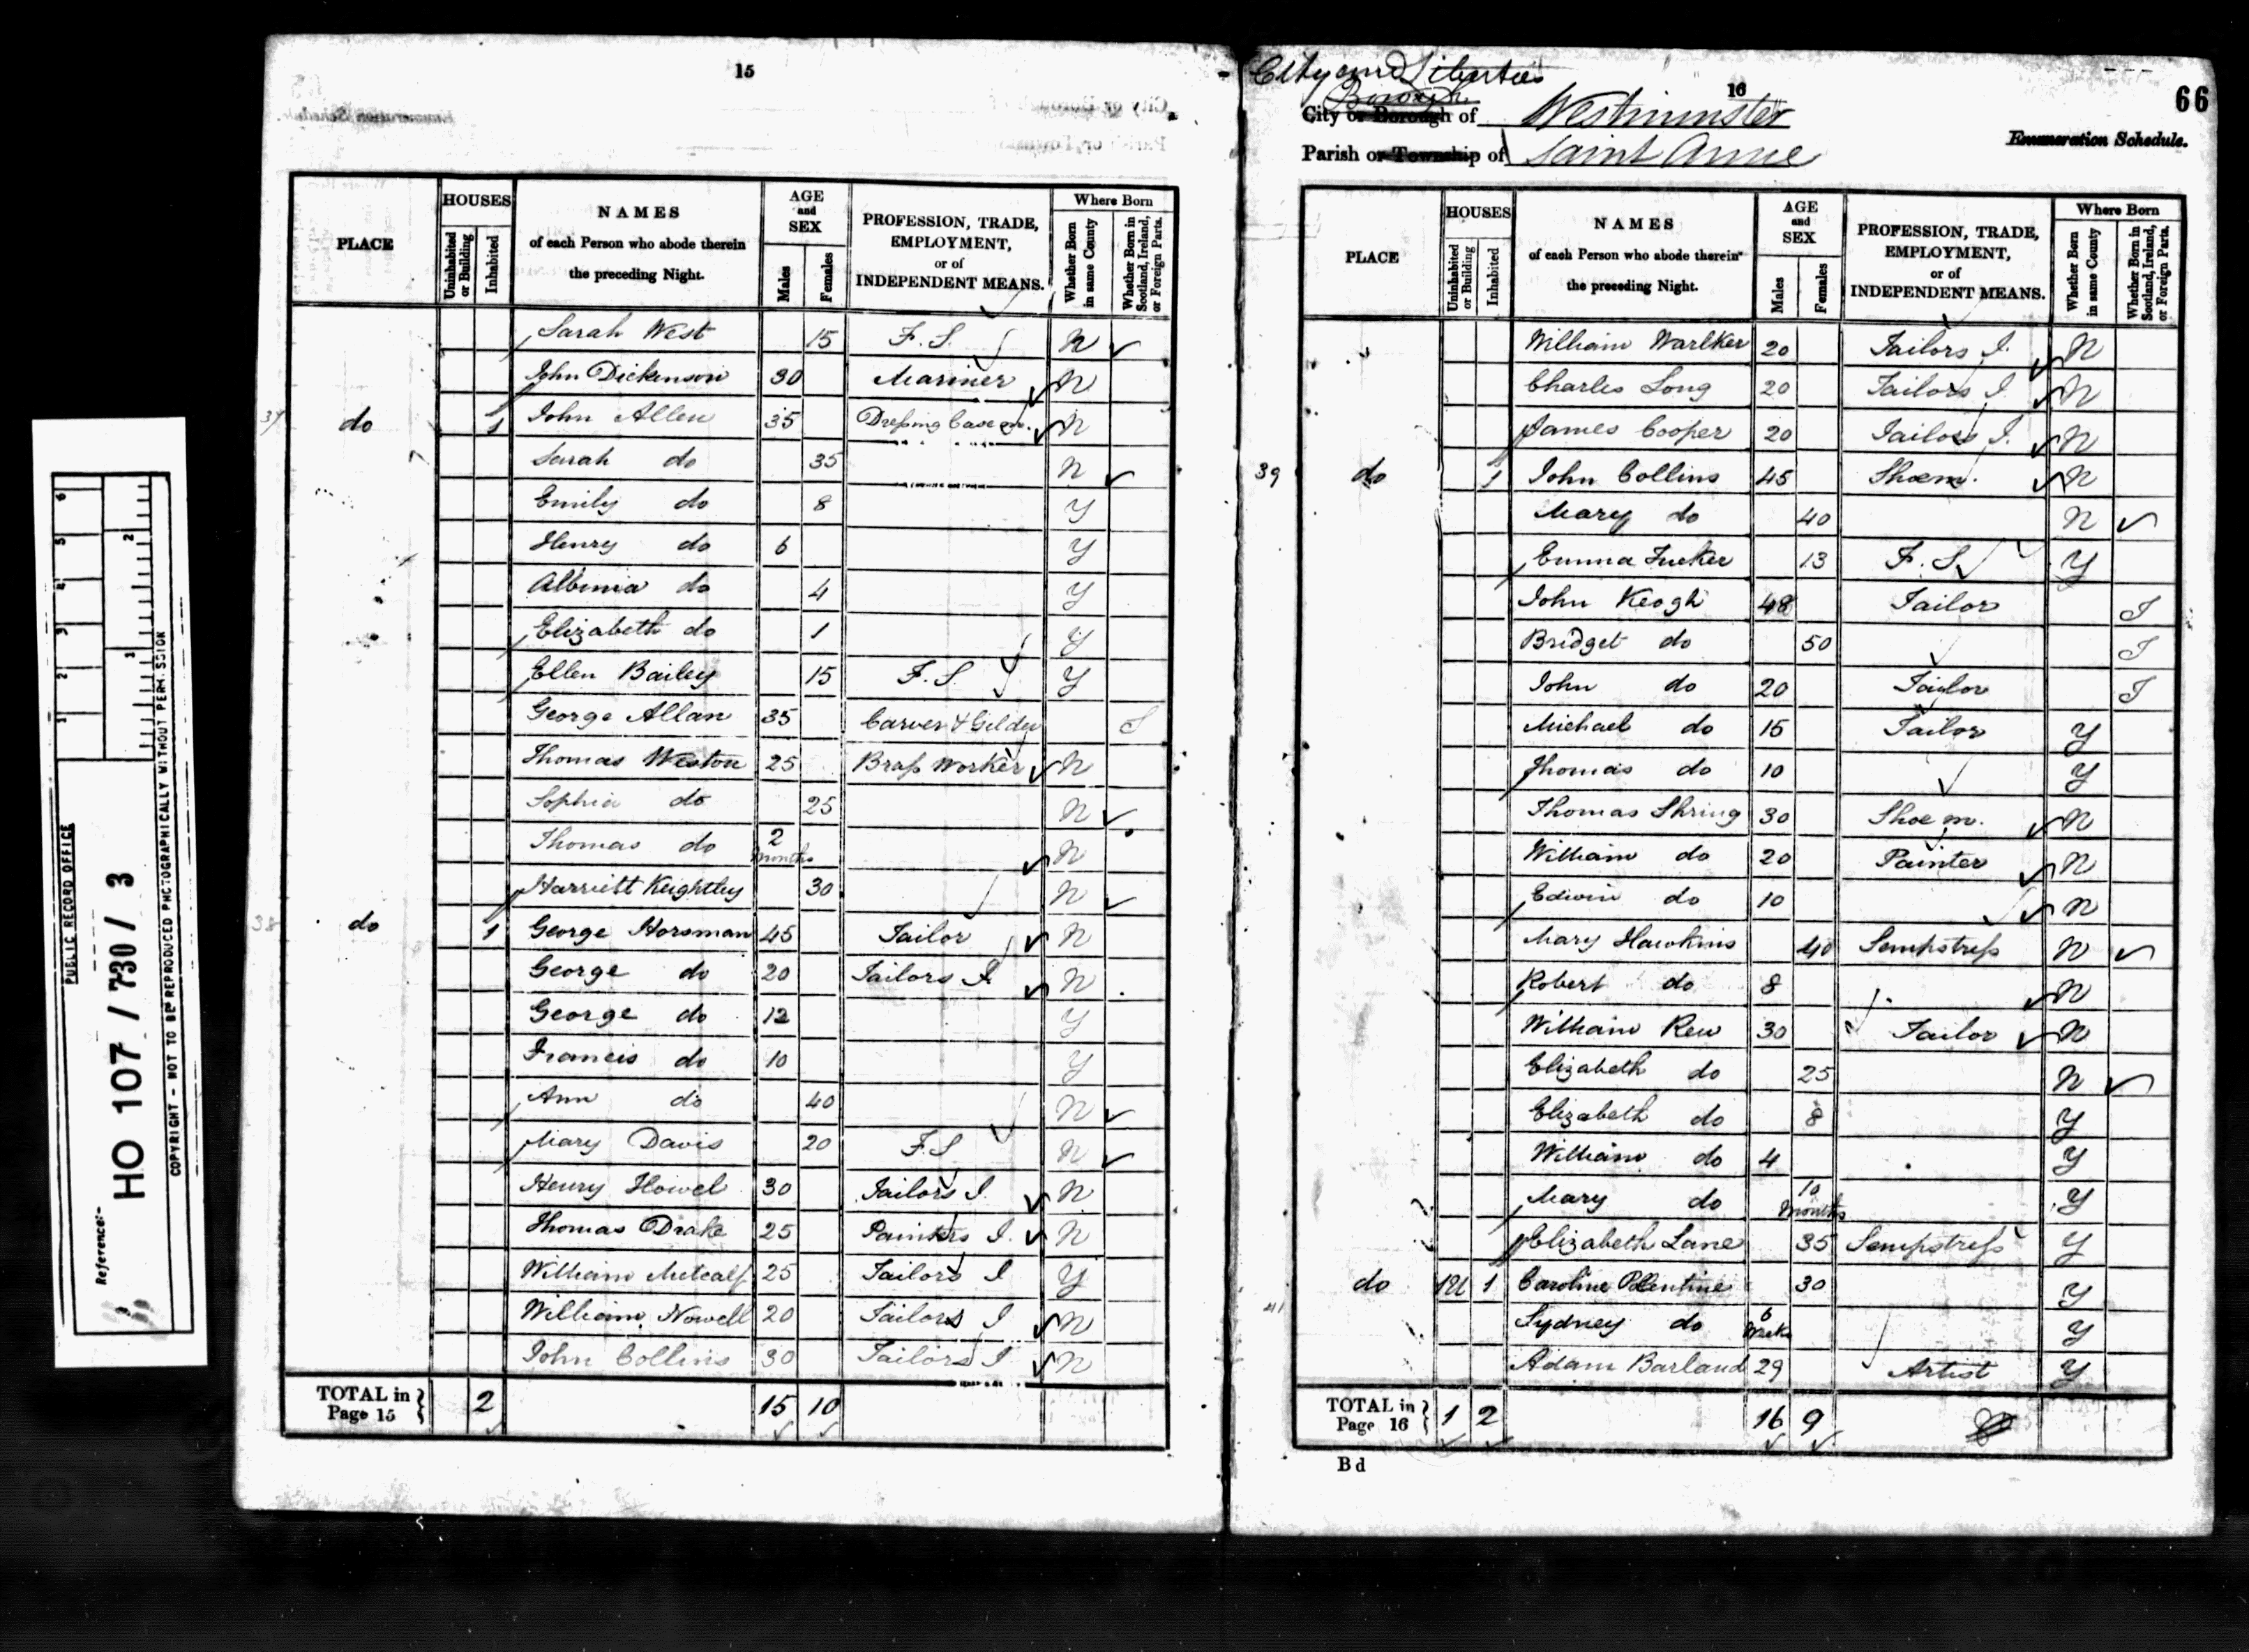 15
PLACE
HOUSES
Uninhabited or Building
Inhabited
NAMES
of each Person who abode therein
the preceding Night.
AGE
and
SEX
Males
Females
PROFESSION, TRADE,
EMPLOYMENT,
or of
INDEPENDENT MEANS.
Where Born
Whether Born in same County
Whether Born in Scotland, Ireland, or Foreign Parts.
Sarah West 15 F. S. N
John Dickenson 30 Mariner N
37 do 1 John Allen 35 Dressing Case m. N
Sarah do 35 N
Emily do 8 Y
Henry do 6 Y
Albinia do 4 Y
Elizabeth do 1 Y
Ellen Bailey 15 F. S Y
George Allan 35 Carver & Gilder S
Thomas Weston 25 Brass Worker N
Sophia do 25 N
Thomas do 2 Months N
Harriett Keightley 30 N
38 do 1 George Horsman 45 Tailor N
George do 20 Tailors J. N
George do 12 Y
Francis do 10 Y
Ann do 40 N
Mary Davis 20 F. S N
Henry Howel 30 Tailors J. N
Thomas Drake 25 Painters J. N
William Metcalf 25 Tailors J Y
William Nowell 20 Tailors J N
John Collins 30 Tailors J N
TOTAL in Page 15 2 15 10
City and Liberties
16
66
City or Borough of Westminster
Parish or Township of Saint Anne
Enumeration Schedule.
PLACE
HOUSES
Uninhabited or Building
Inhabited
NAMES
of each Person who abode therein
the preceding Night.
AGE
and
SEX
Males
Females
PROFESSION, TRADE,
EMPLOYMENT,
or of
INDEPENDENT MEANS.
Where Born
Whether Born in same County
Whether Born in Scotland, Ireland, or Foreign Parts.
William Warlker 20 Tailors J. N
Charles Long 20 Tailors J. N
James Cooper 20 Tailors J. N
39 do 1 John Collins 45 Shoem. N
Mary do 40 N
Emma Tucker 13 F. S Y
John Keogh 48 Tailor I
Bridget do 50 I
John do 20 Tailor I
Michael do 15 Tailor Y
Thomas do 10 Y
Thomas Shring 30 Shoe m. N
William do 20 Painter N
Edwin do 10 N
Mary Hawkins 40 Sempstress N
Robert do 8 N
William Rew 30 Tailor N
Elizabeth do 25 N
Elizabeth do 8 Y
William do 4 Y
Mary do 10 Months Y
Elizabeth Lane 35 Sempstress Y
41 do 1U 1 Caroline 30 Y
Sydney do 6 Weeks Y
Adam Barland 29 Artist Y
TOTAL in Page 16 1 2 16 9
Bd
PUBLIC RECORD OFFICE
Reference:-
HO 107 / 730 / 3
COPYRIGHT - NOT TO BE REPRODUCED PHOTOGRAPHICALLY WITHOUT PERMISSION
1 2 3 4 5 6
1 2